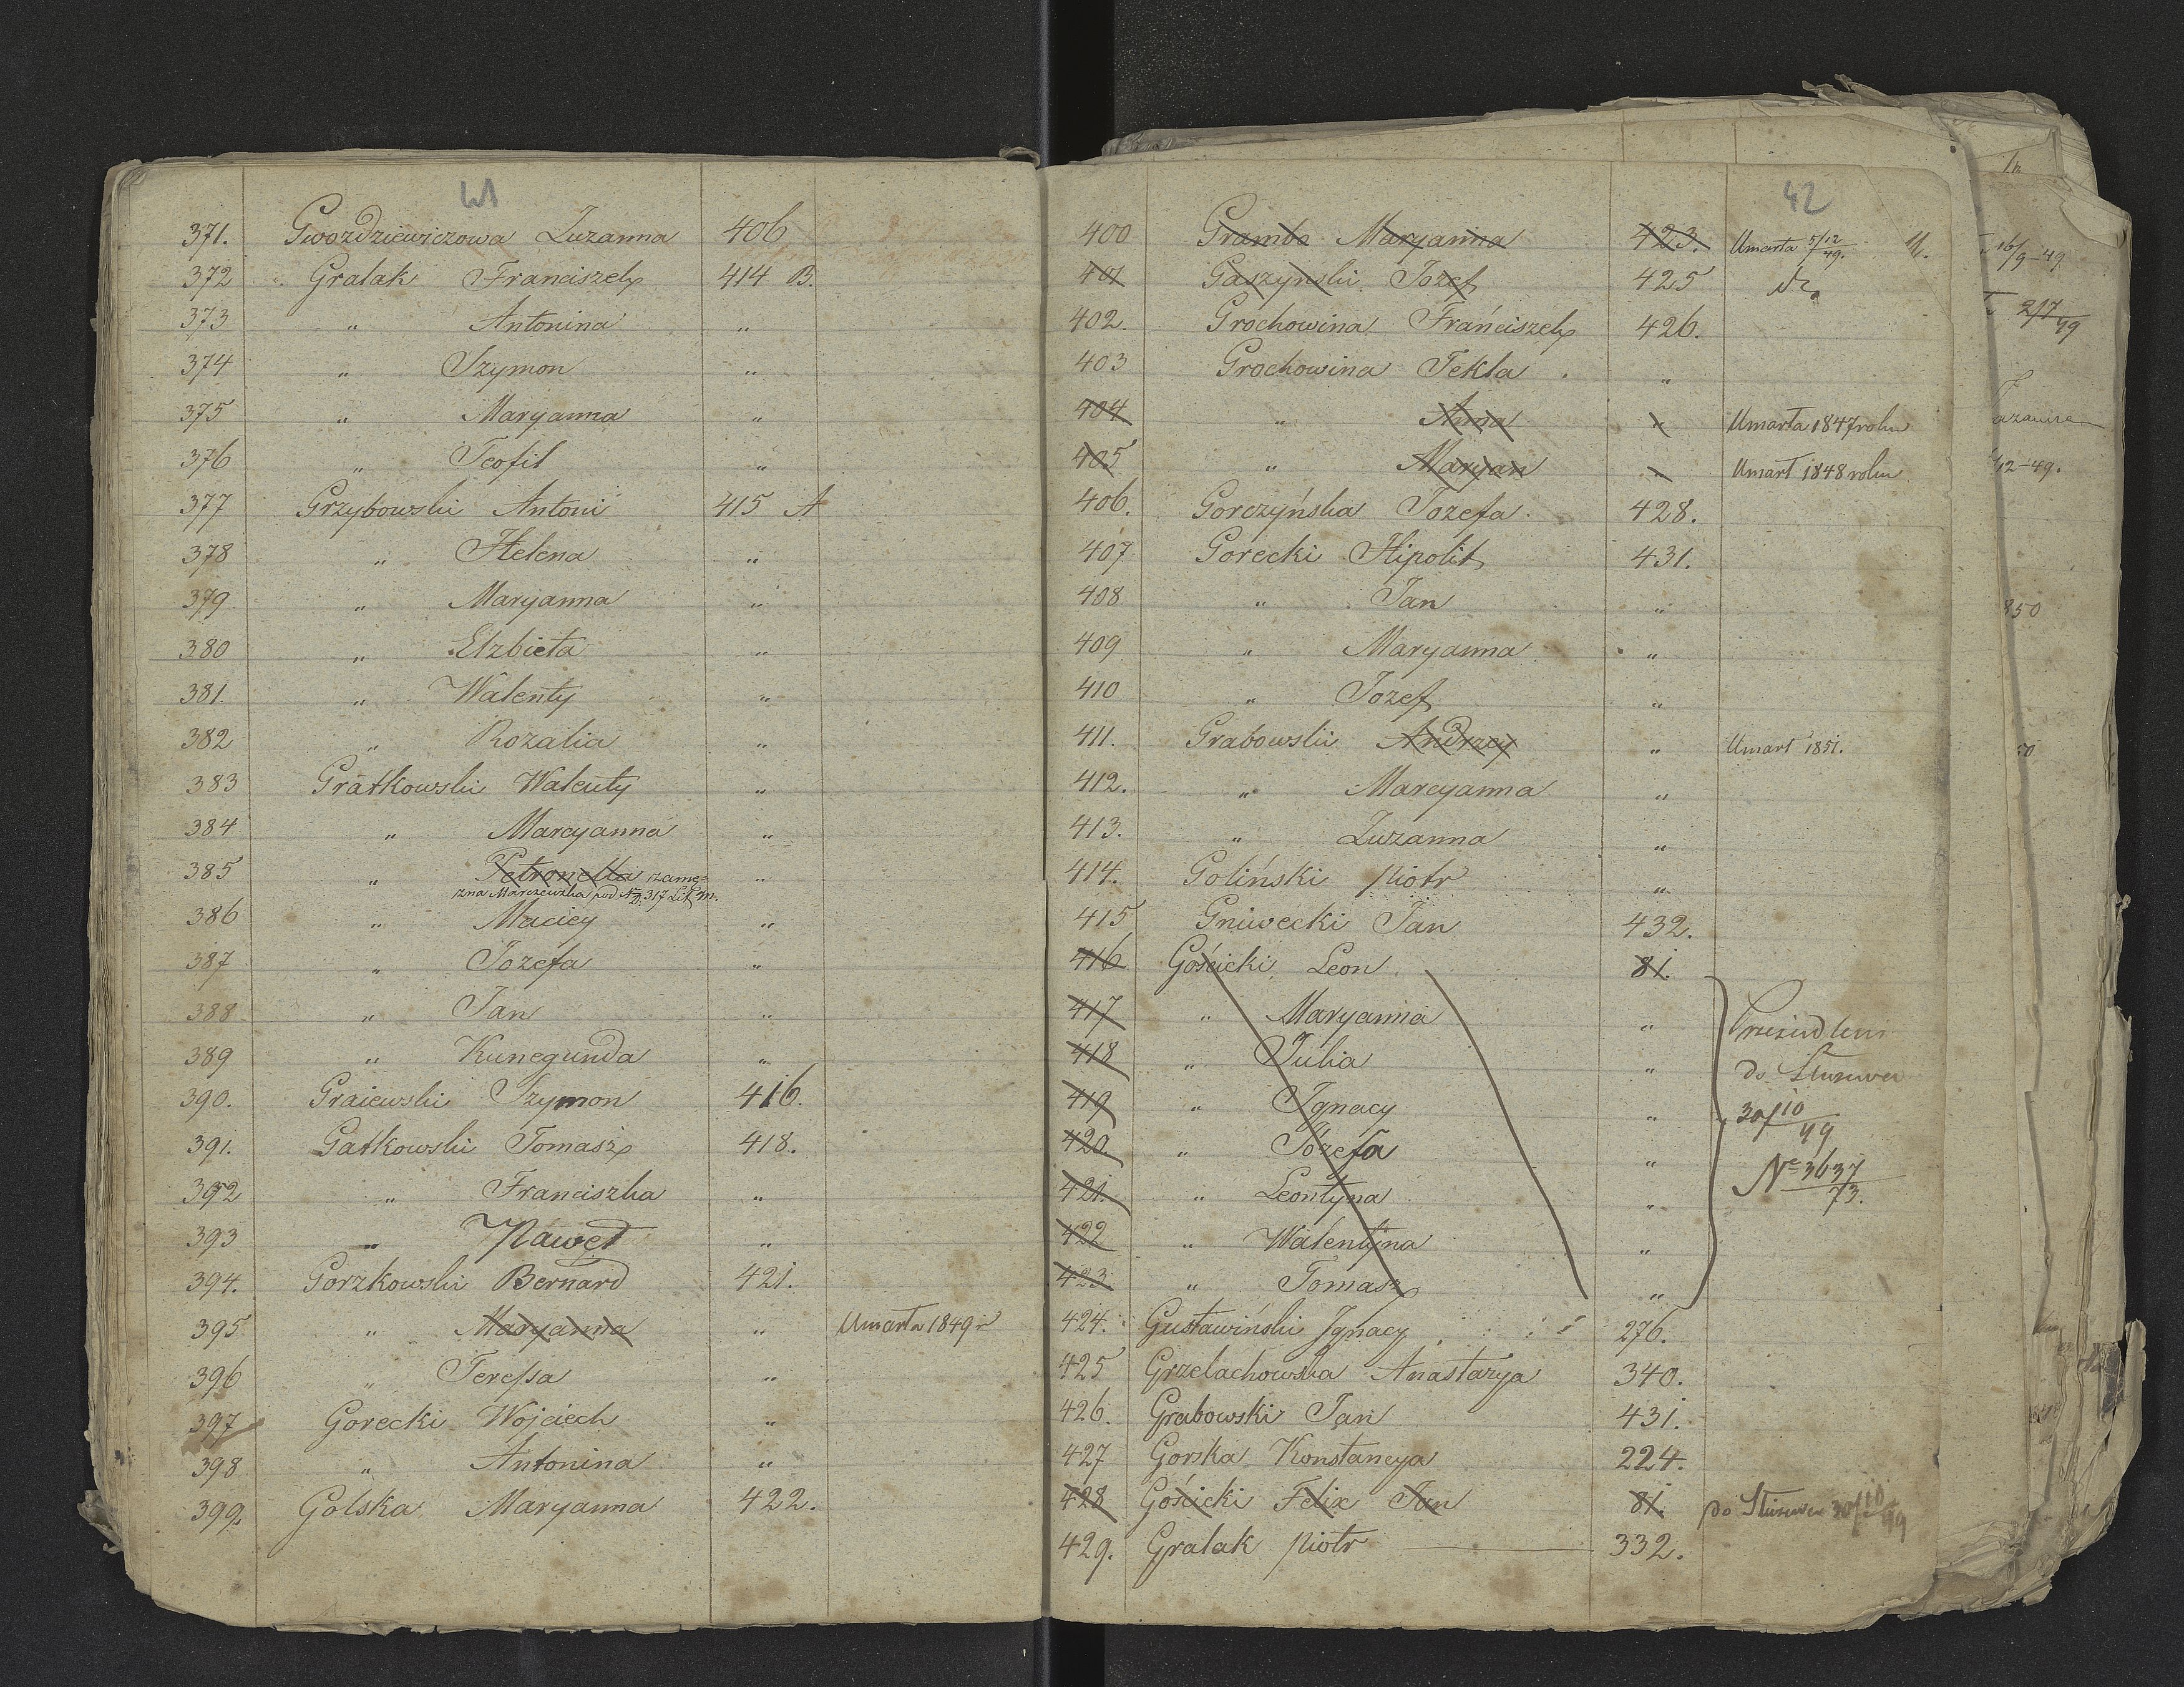 41
371. Gwozdziewiczowa Zuzanna 406
372 Gralak Franciszek 414 B.
373 " Antonina "
374 " Szymon "
375 " Maryanna "
376 " Teofil "
377 Grzybowski Antoni 415 A
378 " Helena "
379 " Maryanna "
380 " Elzbieta "
381. " Walenty "
382 " Rozalia "
383 Gratkowski Walenty "
384 " Marcyanna "
385 " Petronella zamę= "
zna Marczewska pod No 317 Lit. m.
386 " Maciey "
387 " Jozefa "
388 " Jan "
389 " Kunegunda "
390. Graiewski Szymon 416.
391. Gatkowski Tomasz 418.
392 " Franciszka "
393 " Paweł "
394. Gorzkowski Bernard 421.
395 " Maryanna " Umarła 1849 r
396 " Teressa "
397 Gorecki Wojciech "
398 " Antonina "
399. Golska Maryanna 422.
42
400 Grambo Maryanna 423. Umarła 5/12 49.
401 Gaszynski Jozef 425
402. Grochowina Franciszek 426.
403 Grochowina Tekla "
404 " Anna " Umarła 1847 roku
405 " Maryan " Umarł 1848 roku
406. Gorczyńska Jozefa 428.
407 Gorecki Hipolit 431.
408 " Jan "
409 " Maryanna "
410 " Jozef "
411. Grabowski Andrzey " Umarł 1851.
412. " Marcyanna "
413. " Zuzanna "
414. Goliński Piotr "
415 Gniwecki Jan 432.
416 Gościcki Leon 81.
417 " Maryanna "
418 " Julia " do
419 " Ignacy " 30/10 49
420. " Józefa "
421. " Leontyna " No 3637 73.
422 " Walentyna "
423. " Tomasz "
424. Gustawiński Ignacy 276.
425 Grzelachowska Anastazya 340.
426. Grabowski Jan 431.
427 Gorska Konstancya 224.
428 Gościcki Felix Jan 81. do 30/10 49
429. Gralak Piotr 332.
16/9-49
2/7 49
12-49.
850
50